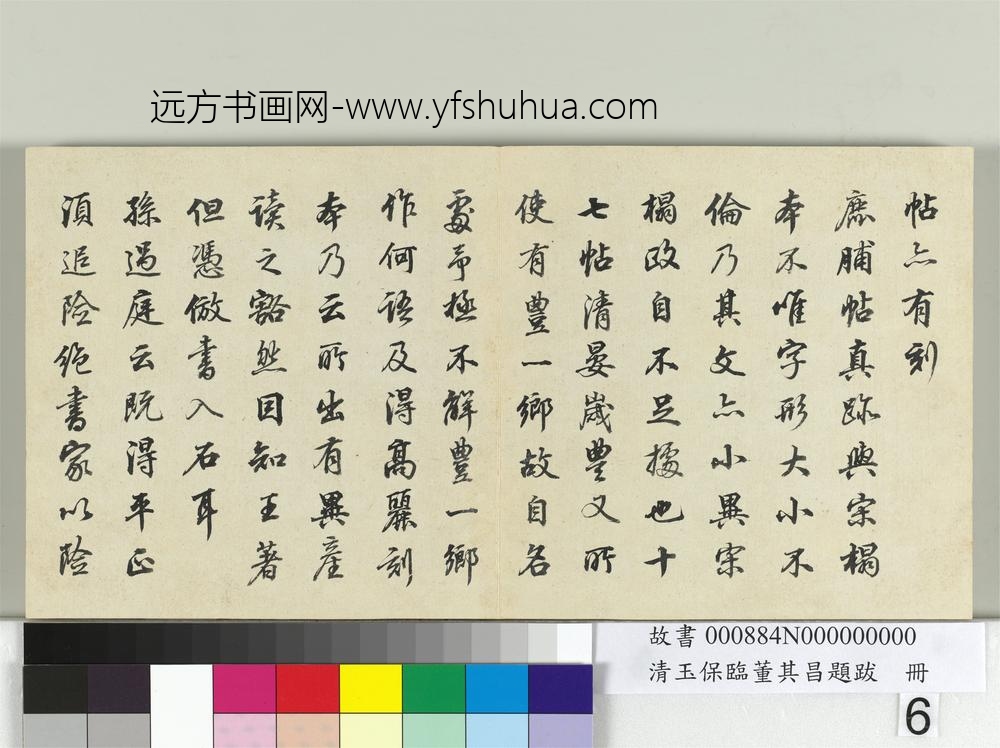 远方书画网-www.yfshuhua.com
帖亦有刻
鹿脯帖真跡與宋榻
本不唯字形大小不
倫乃其文亦小異宋
榻政自不足據也十
七帖清晏歲豊又所
使有豊一鄉故自名
處前極不解豊一鄉
作何語及得高麗刻
本乃云所出有異產
读之豁然因知王著
但憑倣書入石耳
孫過庭云既得平正
須追险绝書家以险
故書 000884N000000000
清玉保臨董其昌題跋 冊
6